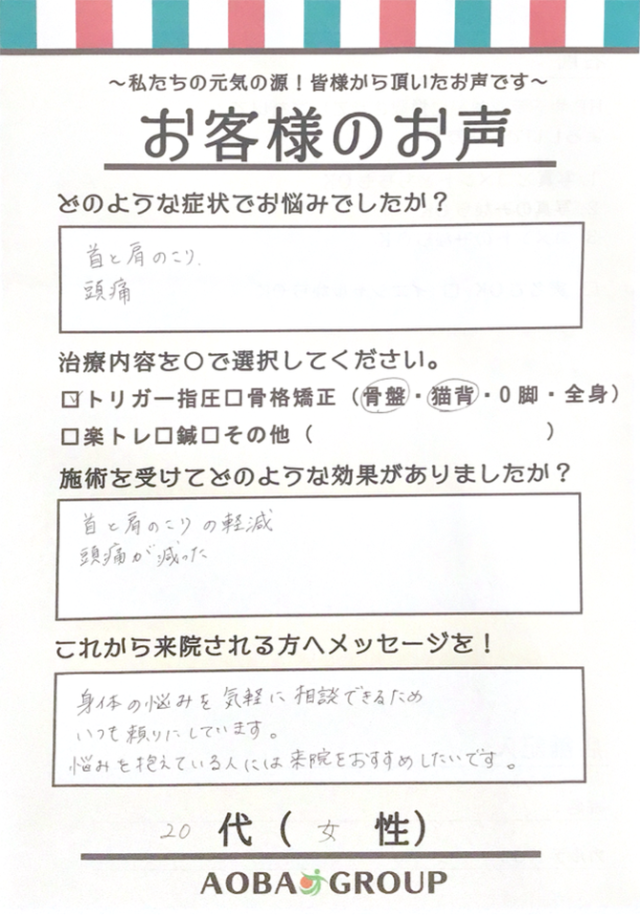 ～私たちの元気の源！皆様から頂いたお声です～
お客様のお声
どのような症状でお悩みでしたか？
首と肩のこり、
頭痛
治療内容を〇で選択してください。
☑トリガー指圧☐骨格矯正（骨盤・猫背・O脚・全身）
☐楽トレ☐鍼☐その他（　　　　　　　　　　）
施術を受けてどのような効果がありましたか？
首と肩のこりの軽減
頭痛が減った
これから来院される方へメッセージを！
身体の悩みを気軽に相談できるため
いつも頼りにしています。
悩みを抱えている人には来院をおすすめしたいです。
20代（女性）
AOBA GROUP